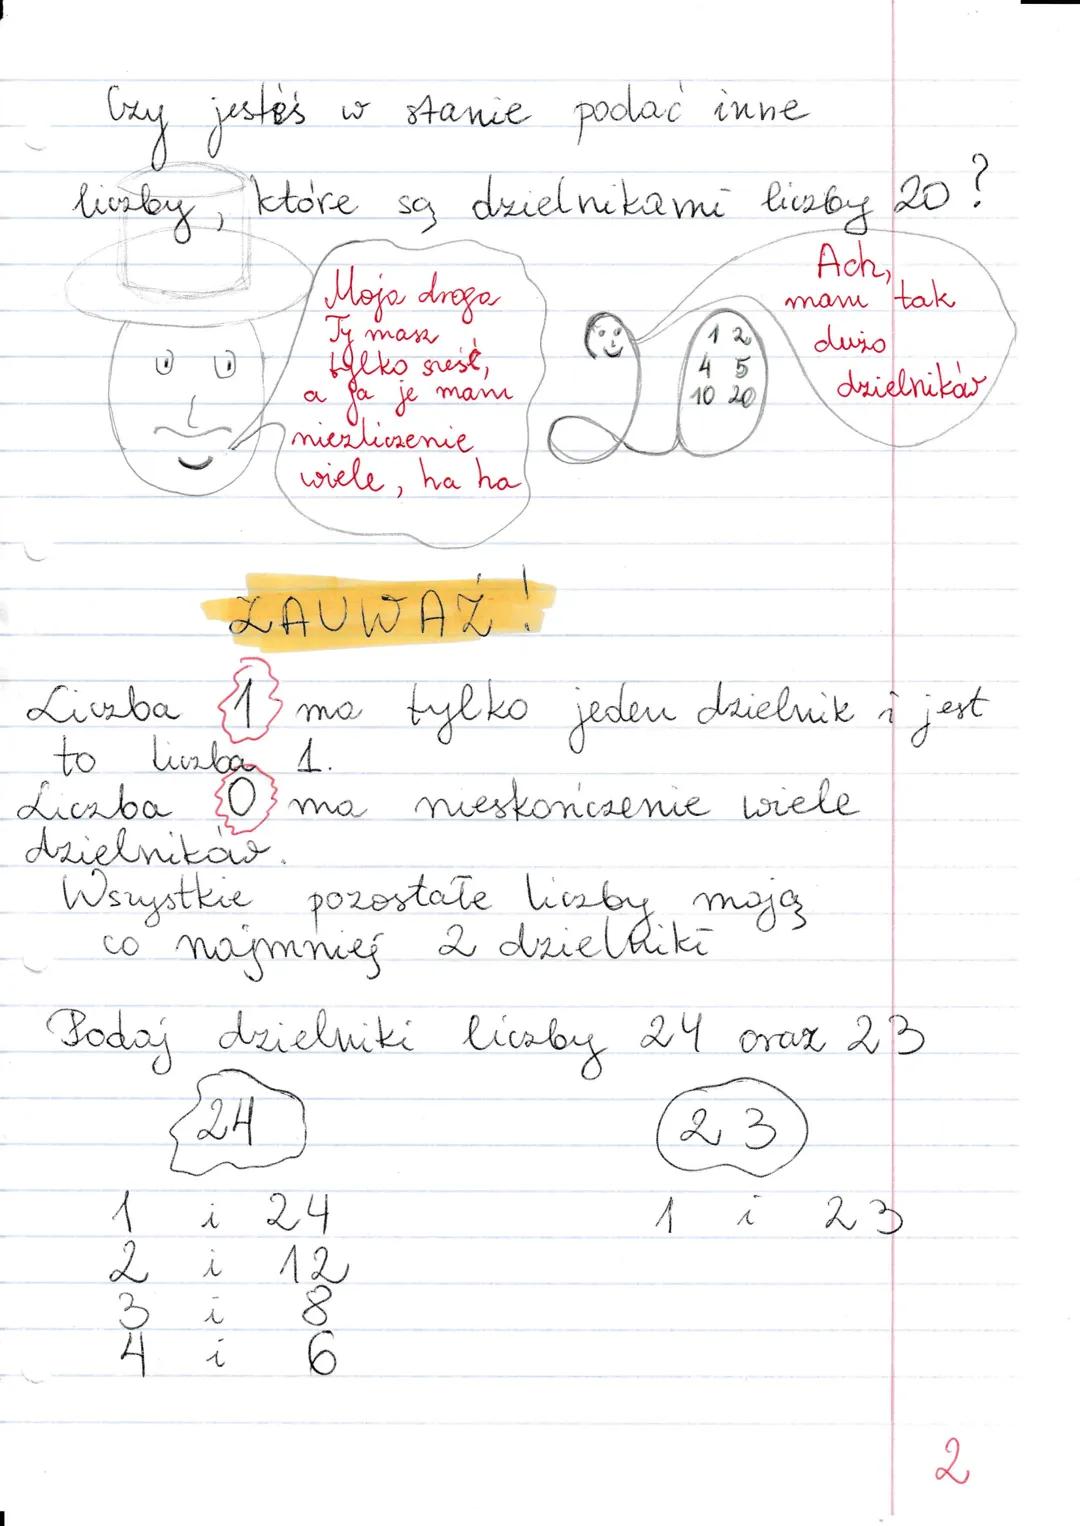 Czy jesteś w stanie podać inne
liczby, które są dzielnikami liczby 20?
Moja droga
Ty masz
tylko sześć,
a ja je mam
niezliczenie
wiele, ha ha
1 2
4 5
10 20
Ach,
mam tak
dużo
dzielników
ZAUWAŻ!
Liczba 1 ma tylko jeden dzielnik i jest
to liczba 1.
Liczba 0 ma nieskończenie wiele
dzielników.
Wszystkie pozostałe liczby mają
co najmniej 2 dzielniki
Podaj dzielniki liczby 24 oraz 23
24
23
1 i 24
1 i 23
2 i 12
3 i 8
4 i 6
2